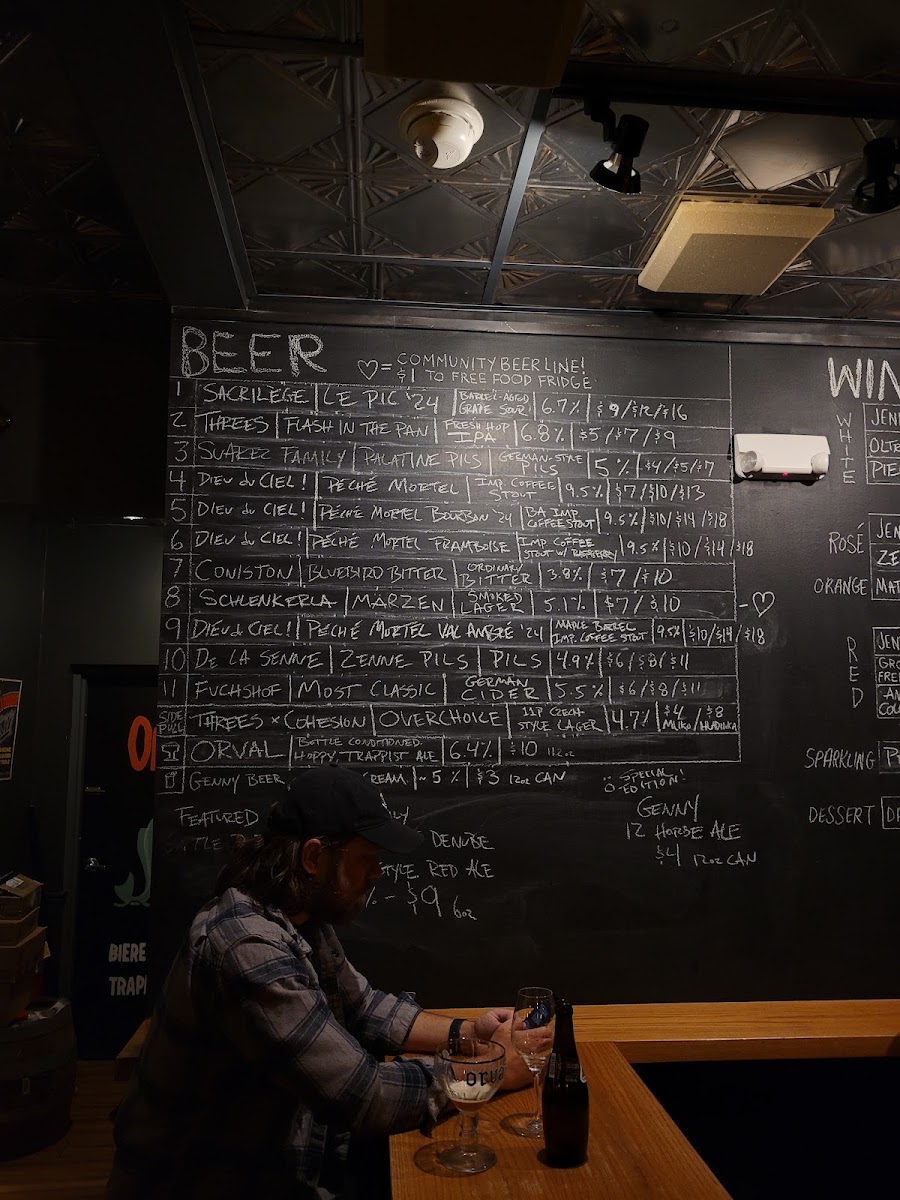 BEER
♡ = COMMUNITY BEER LINE!
$1 TO FREE FOOD FRIDGE
1 SACRILÈGE LE PIC '24 BARREL-AGED GRAPE SOUR 6.7% $9/$12/$16
2 THREES FLASH IN THE PAN FRESH HOP IPA 6.8% $5/$7/$9
3 SUAREZ FAMILY PALATINE PILS GERMAN-STYLE PILS 5% $4/$5/$7
4 DIEU du CIEL! PÉCHÉ MORTEL IMP. COFFEE STOUT 9.5% $7/$10/$13
5 DIEU du CIEL! PÉCHÉ MORTEL BOURBON '24 BA IMP. COFFEE STOUT 9.5% $10/$14/$18
6 DIEU du CIEL! PÉCHÉ MORTEL FRAMBOISE IMP. COFFEE STOUT W/ RASPBERRY 9.5% $10/$14/$18
7 CONISTON BLUEBIRD BITTER ORDINARY BITTER 3.8% $7/$10
8 SCHLENKERLA MÄRZEN SMOKED LAGER 5.1% $7/$10 -♡
9 DIEU du CIEL! PÉCHÉ MORTEL VAL AMBRÉ '24 MAPLE BARREL IMP. COFFEE STOUT 9.5% $10/$14/$18
10 DE LA SENNE ZENNE PILS PILS 4.9% $6/$8/$11
11 FUCHSHOF MOST CLASSIC GERMAN CIDER 5.5% $6/$8/$11
SIDE PULL THREES × COHESION OVERCHOICE 11P CZECH STYLE LAGER 4.7% $4 MLIKO/$8 HLADINKA
ORVAL BOTTLE CONDITIONED HOPPY, TRAPPIST ALE 6.4% $10 11.2oz
GENNY BEER CREAM ~5% $3 12oz CAN
SPECIAL EDITION!
GENNY
12 HORSE ALE
$4 12oz CAN
FEATURED
DENUBE
STYLE RED ALE
% - $9 6oz
WIN
WHITE
JEN
OLTR
PIE
ROSÉ
JEN
ZE
ORANGE MAT
RED
JEN
GRO
FRE
AN
COL
SPARKLING
DESSERT
BIERE
TRAPP
orva